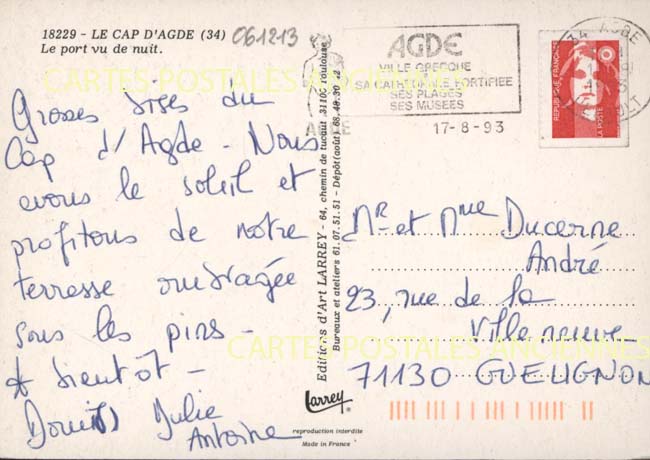 18229 - LE CAP D'AGDE (34)
Le port vu de nuit.
061213
CARTES POSTALES ANCIENNES
Grosses bises du
Cap d'Agde - Nous
avons le soleil et
profitons de notre
terrasse ombragée
sous les pins -
A bientôt -
Julie
Antoine
Editions d'Art LARREY - 64, chemin de tucaut 31100 Toulouse
Bureaux et ateliers 61.07.51.51 - Dépôt (août) 68.48.30.22
Larrey
reproduction interdite
Made in France
AGDE
AGDE
VILLE GRECQUE
SA CATHEDRALE FORTIFIEE
SES PLAGES
SES MUSEES
17-8-93
34 AGDE
REPUBLIQUE FRANÇAISE
LA POSTE
Mr et Mme Ducerne
André
23, rue de la
Villeneuve
71130 GUEUGNON
CARTES POSTALES ANCIENNES